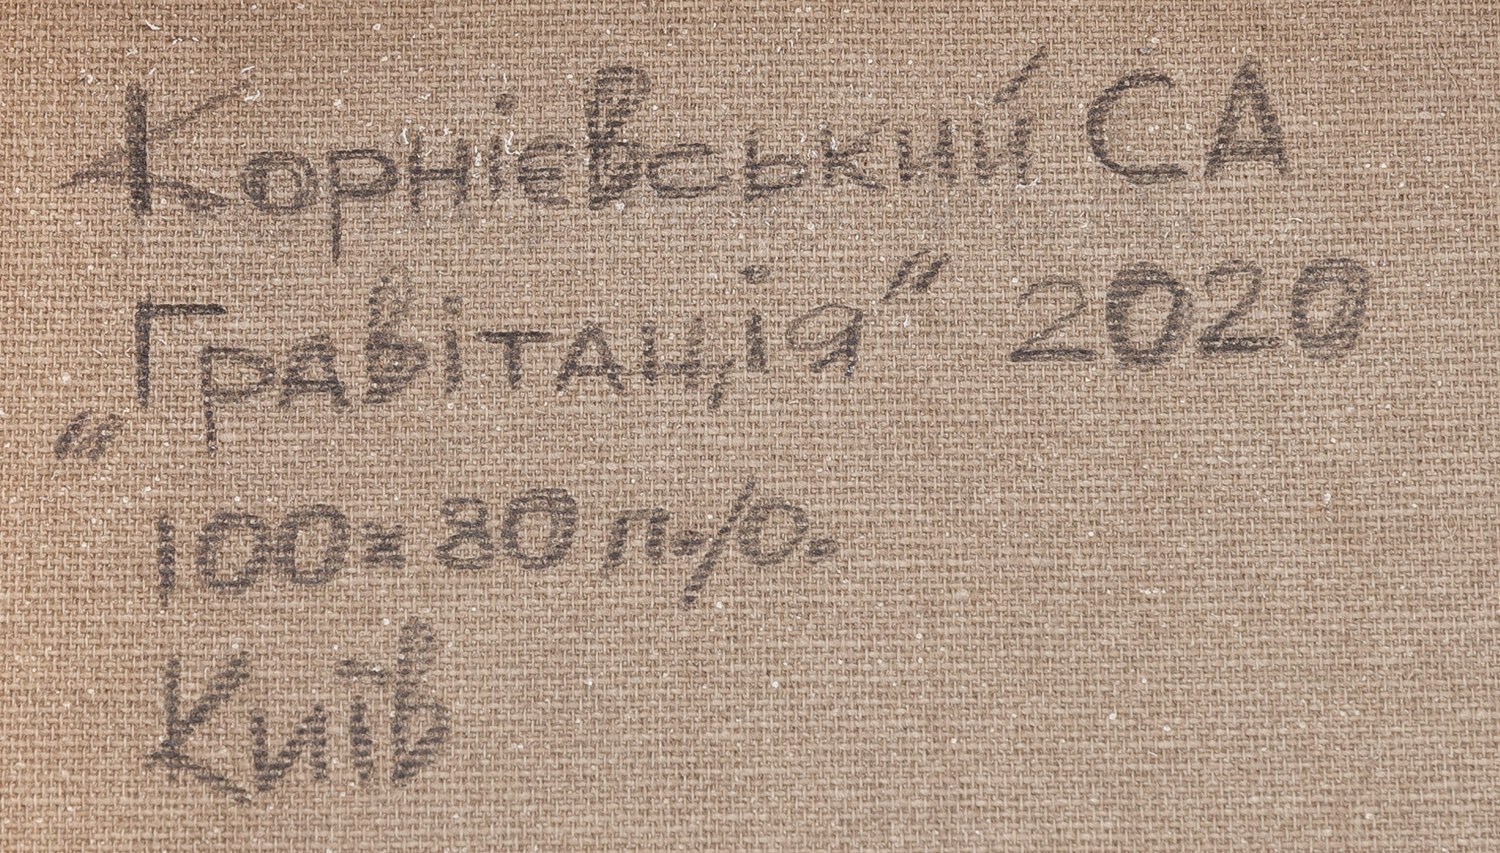 Корнієвський СА
„Гравітація“ 2020
100×80 п./о.
Київ